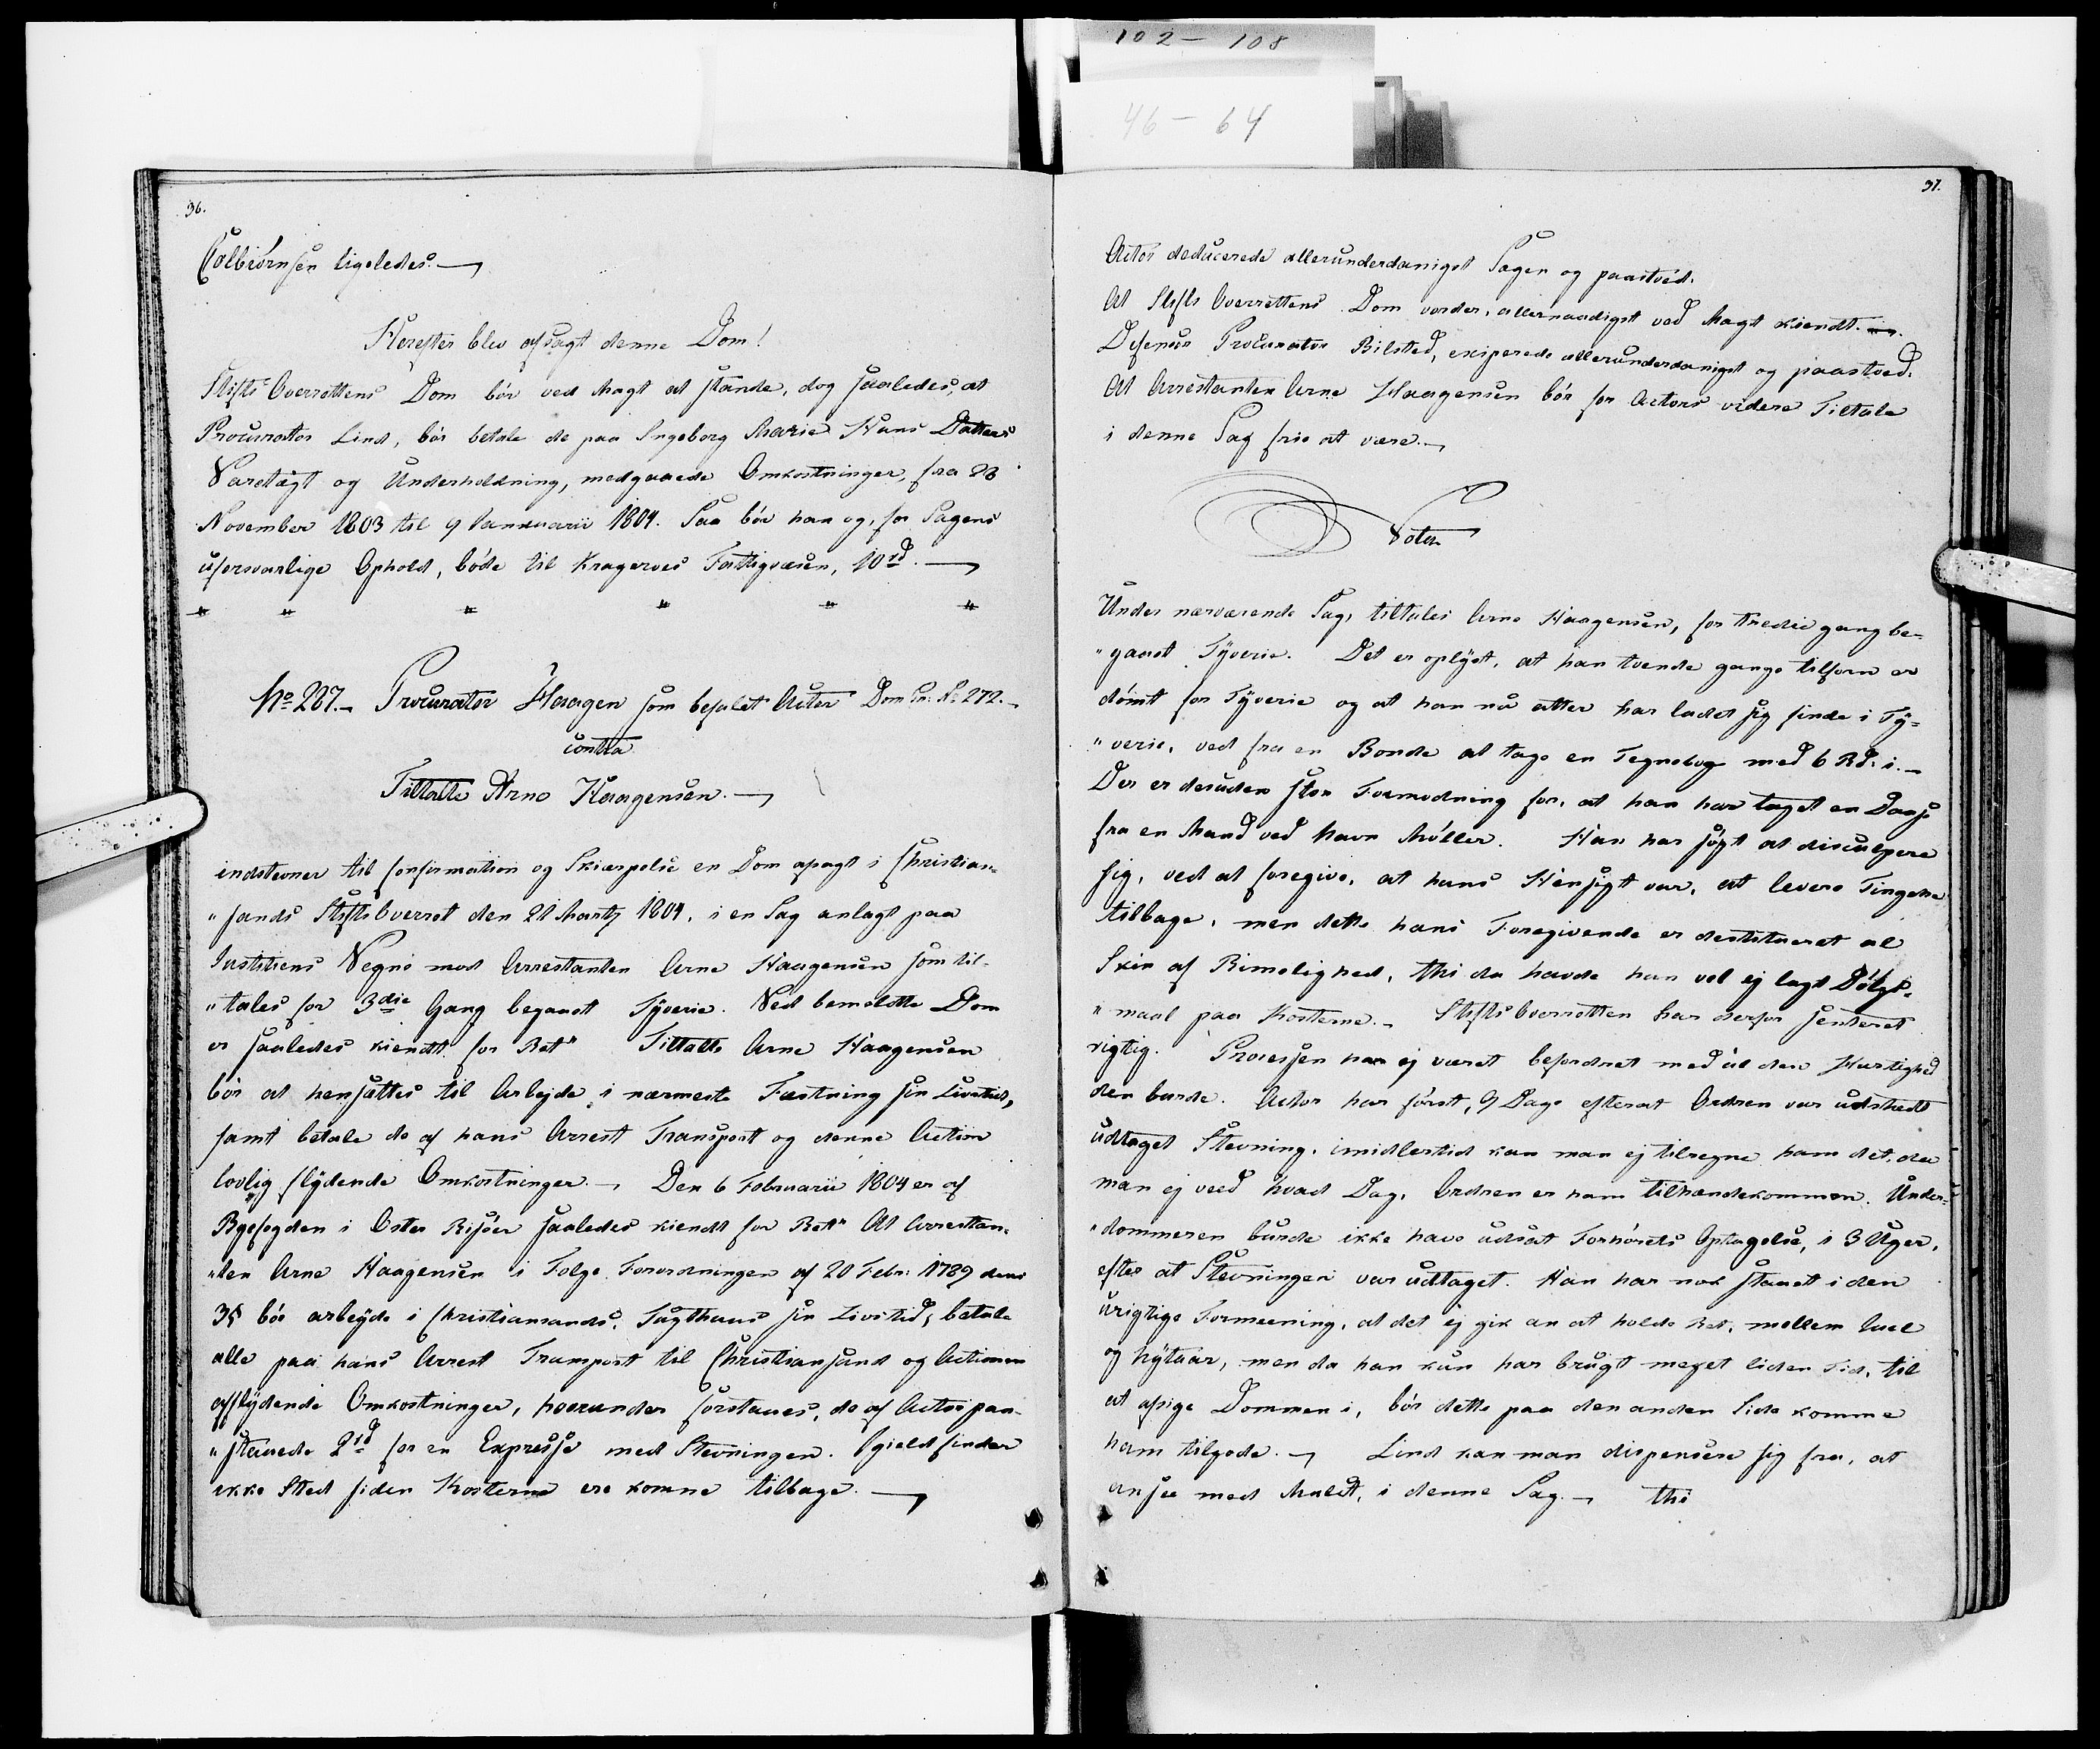 102 - 108
46 - 64
36.
Colbiörnsen ligeledes.
Herefter blev afsagt denne Dom!
Stifts Overrettens Dom bör ved Magt at stande, dog saaledes, at
Procurator Lind, bör betale de paa Ingeborg Marie Hans Datters
Varetægt og Underholdning, medgaaede Omkostninger, fra 28
November 1803 til 9 Januarii 1804. Saa bör han og, for Sagens
uforsvarlige Ophold, böde til Krageröes Fattigvæsen, 10 rd.
" " " " " "
No 227. Procurator Haagen som befalet Actor Dom Pr: No 272.
contra
Tiltalte Arne Haagensen.
indstevner til Confirmation og Skiærpelse en Dom afsagt i Christian-
"sands Stifts Overret den 21 Martz 1804, i en Sag anlagt paa
Justitiens Vegne mod Arrestanten Arne Haagensen som til-
"tales for 3die Gang begaaet Tÿverie. Ved bemeldte Dom
er saaledes kiendt for Ret" Tiltalte Arne Haagensen
bör at hensættes til Arbejde i nærmeste Fæstning sin Livstid,
samt betale de af hans Arrest Transport og denne Action
lovlig flÿdende Omkostninger. Den 6 Februarii 1804 er af
Byefogden i Oster Riisöer saaledes kiendt for Ret" At Arrestan-
"ten Arne Haagensen i Folge Forordningen af 20 Febr: 1789 dens
3 § bör arbeyde i Christiansands Tugthuus sin Livstid, betale
alle paa hans Arrest Transport til Christiansand og Actionen
afflÿdende Omkostninger, hvorunder forstaaes, de af Actor paa-
"staaede 2 rd for en Expresse med Stevningen. Igield finder
ikke Sted siden Kosterne ere komne tilbage.
37.
Actor deducerede allerunderdanigst Sagen og paastod.
At Stifts Overrettens Dom vorder, allernaadigst ved Magt kiendt.
Defensor Procurator Bilsted, exiperede allerunderdanigst og paastod.
At Arrestanten Arne Haagensen bör for Actors videre Tiltale
i denne Sag frie at være.
Vota
Under nærværende Sag, tiltales Arne Haagensen, for tredie gang be-
"gaaet Tÿverie. Det er oplÿst, at han tvende gange tilforn er
dömt for Tÿverie og at han nu atter har ladet sig finde i Tÿ-
"verie, ved fra en Bonde at tage en Tegnebog med 6 Rd. i.
Der er desuden stor Formodning for, at han har taget en Daase
fra en Mand ved Navn Möller. Han har sögt at disculpere
sig, ved at foregive, at hans Hensigt var, at levere Tingene
tilbage, men dette hans Foregivende er destitueret al
Skin af Rimelighed, thi da havde han vel ej lagt Dölgs-
"maal paa Kosterne. Stifts Overretten har derfor senteret
rigtig. Processen har ej været befordret med al den Hurtighed
den burde. Actor har först, 9 Dage efterat Ordren var udstædt
udtaget Stevning, imidlertid kan man ej tilregne ham det, da
man ej veed hvad Dag, Ordren er ham tilhændekommen. Under-
"dommeren burde ikke have udsat Forhörets Optagelse, i 3 Uger,
efter at Stevningen var udtaget. Han har nok staaet i den
urigtige Formeening, at det ej gik an at holde Ret, mellem Juel
og Nÿtaar, men da han kun har brugt meget liden Tid, til
at afsige Dommen i, bör dette paa den anden Side komme
ham tilgode. Lind kan man dispensere sig fra, at
ansee med Mulct, i denne Sag. thi